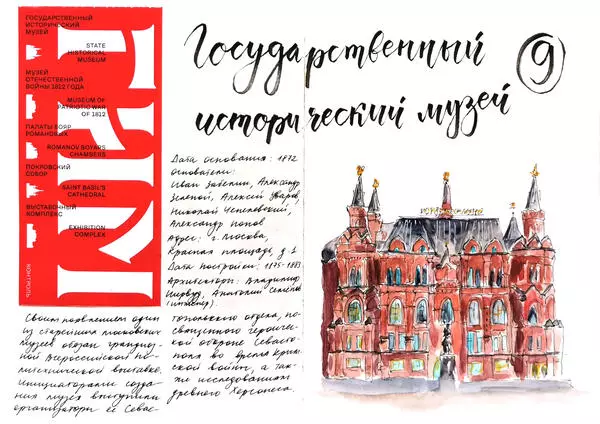 ГОСУДАРСТВЕННЫЙ
ИСТОРИЧЕСКИЙ
МУЗЕЙ
STATE
HISTORICAL
MUSEUM
МУЗЕЙ
ОТЕЧЕСТВЕННОЙ
ВОЙНЫ 1812 ГОДА
MUSEUM OF
PATRIOTIC WAR
OF 1812
ПАЛАТЫ БОЯР
РОМАНОВЫХ
ROMANOV BOYARS
CHAMBERS
ПОКРОВСКИЙ
СОБОР
SAINT BASIL'S
CATHEDRAL
ВЫСТАВОЧНЫЙ
КОМПЛЕКС
EXHIBITION
COMPLEX
КОНТРОЛЬ
ГИМ
Государственный
исторический музей
9
Дата основания: 1872
Основатели:
Иван Забелин, Александр
Зеленой, Алексей Уваров,
Николай Чепелевский,
Александр Попов
Адрес: г. Москва,
Красная площадь, д. 1
Дата постройки: 1875-1883
Архитекторы: Владимир
Шервуд, Анатолий Семенов
(инженер)
Своим появлением один
из старейших московских
музеев обязан грандиоз-
ной Всероссийской по-
литехнической выставке.
Инициаторами созда-
ния музея выступили
организаторы её Севас-
топольского отдела, по-
священного героичес-
кой обороне Севасто-
поля во время Крым-
ской войны, а так-
же исследованиям
древнего Херсонеса